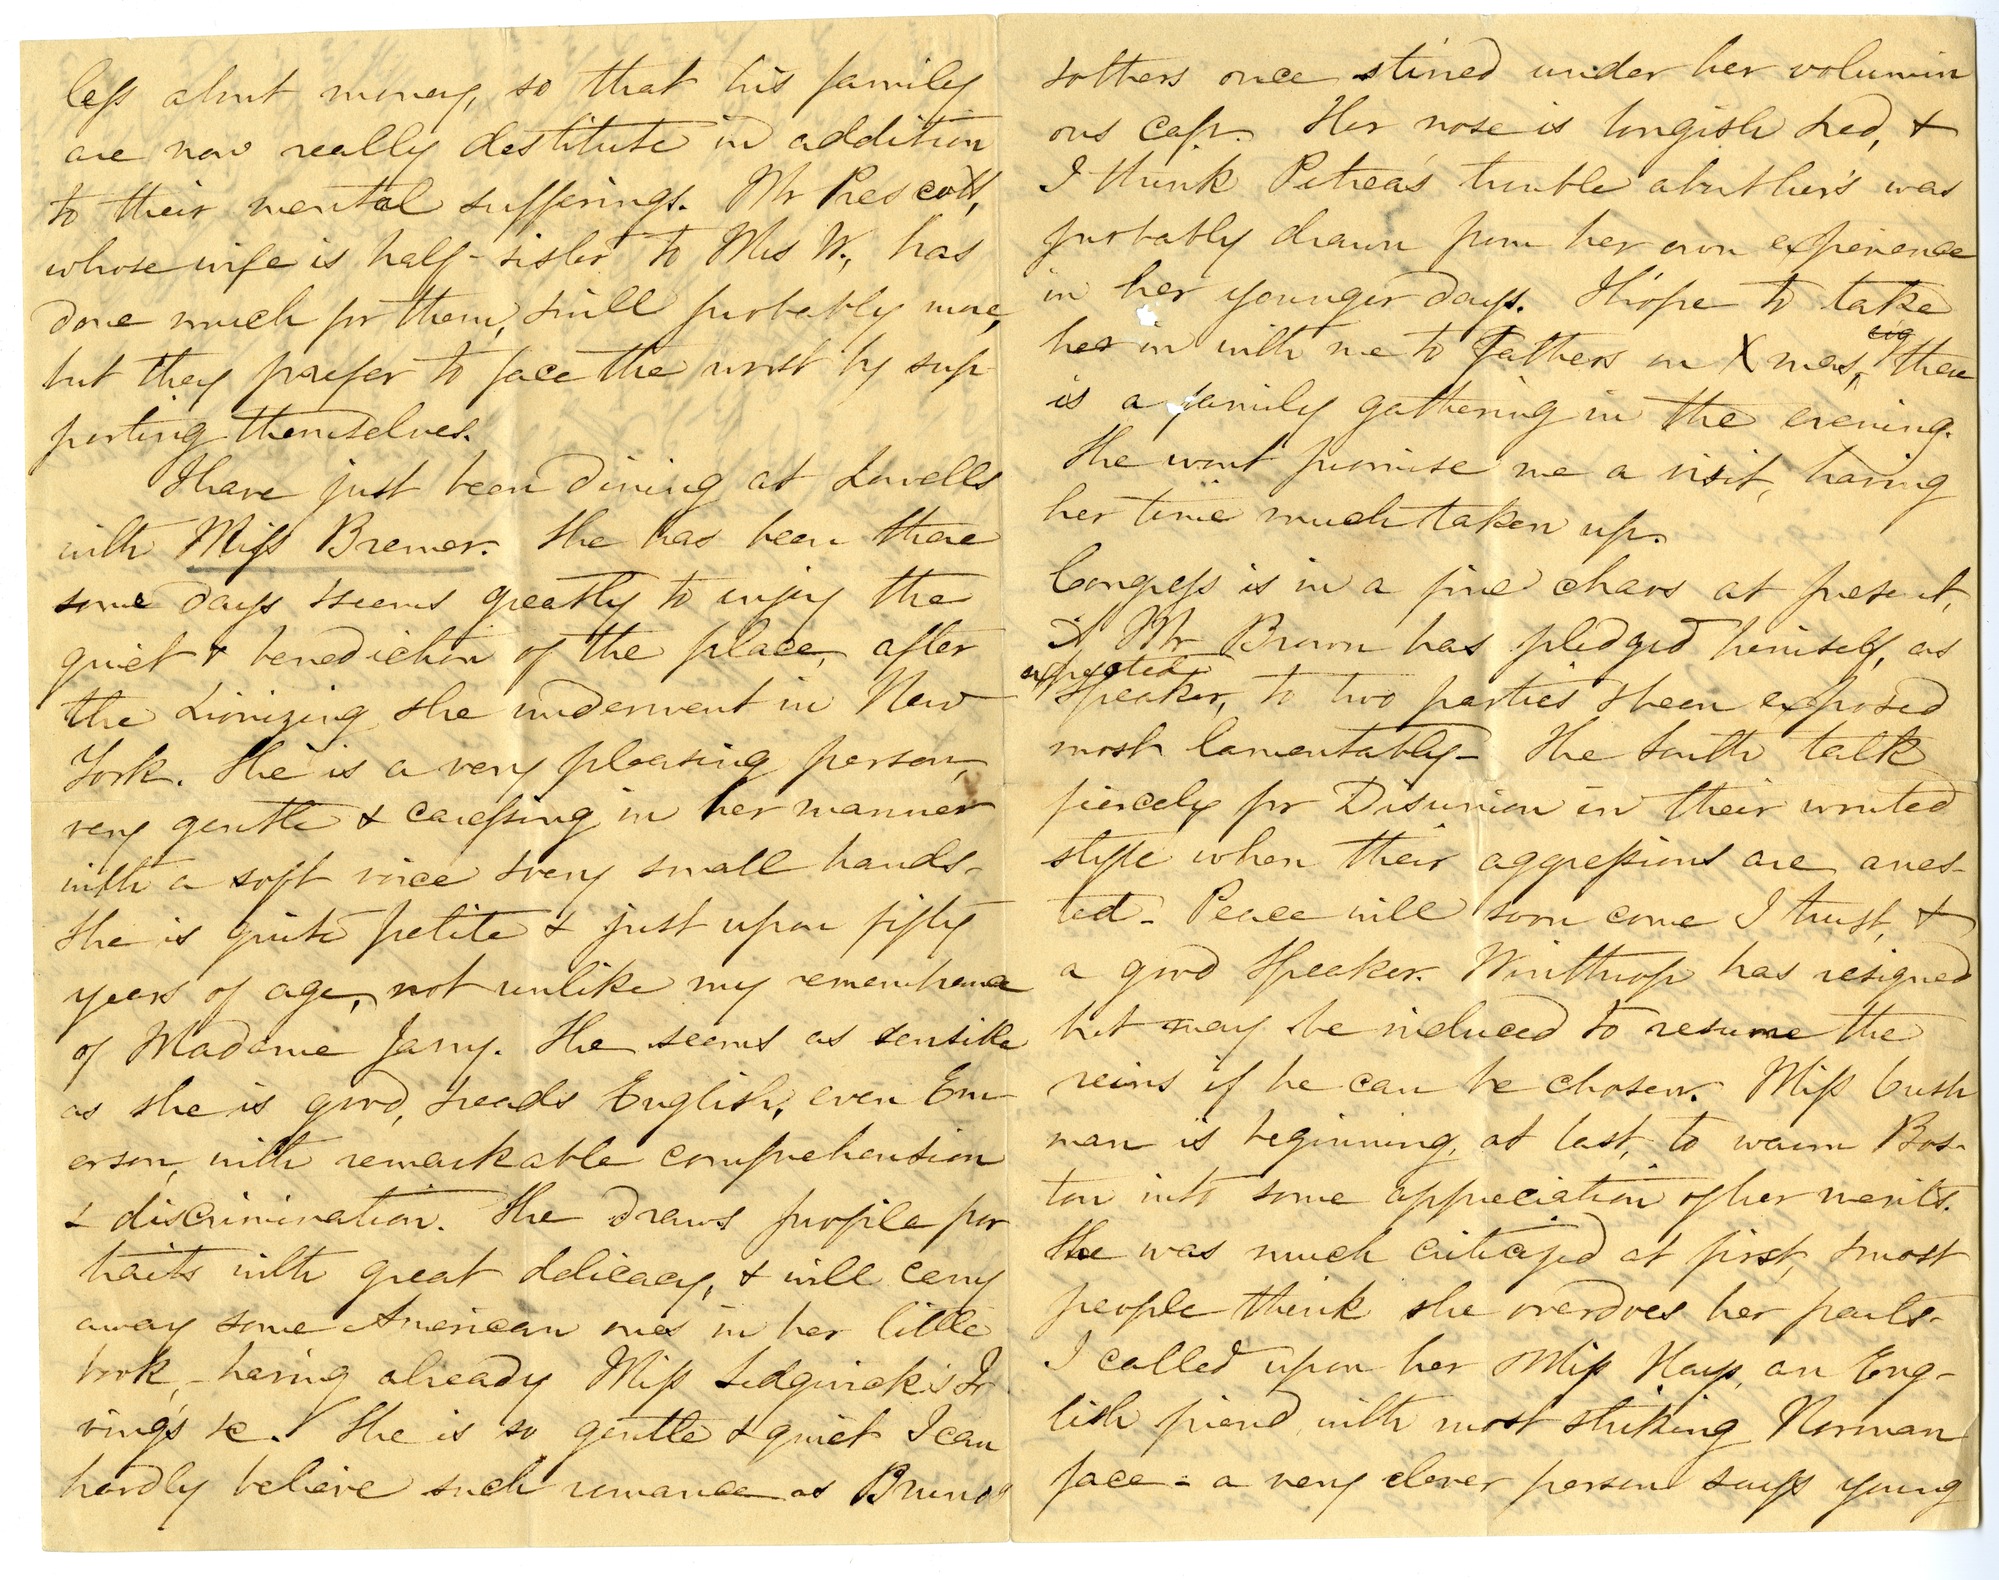 less about money, so that his family
are now really destitute in addition
to their mental sufferings. Mr Prescott,
whose wife is half-sister to Mrs W., has
done much for them, & will probably more,
but they prefer to face the worst by sup-
porting themselves.
I have just been dining at Lowells
with Miss Bremer. She has been there
some days & seems greatly to enjoy the
quiet & benediction of the place, after
the Lionizing she underwent in New
York. She is a very pleasing person,
very gentle & caressing in her manner
with a soft voice & very small hands-
She is quite petite & just upon fifty
years of age, not unlike my remembrance
of Madame Jarry. She seems as sensible
as she is good, & reads English, even Em-
erson, with remarkable comprehension
& discrimination. She draws profile por
traits with great delicacy, & will carry
away some American ones in her little
book,- having already Miss Sedgwick's Ir
ving's &c. She is so gentle & quiet I can
hardly believe such romance as Brunos
& others once stirred under her volumin
ous cap. Her nose is longish & red, &
I think Petrea's trouble about hers was
probably drawn from her own experience
in her younger days. I hope to take
her in with me to Father's on Xmas, there
is a family gathering in the evening.
She wont promise me a visit, having
her time much taken up.
Congress is in a fine chaos at present,
& Mr Brown has pledged himself, as
expected
Speaker, to two parties & been exposed
most lamentably- The South talk
fiercely for Disunion in their wonted
style when their aggressions are arres-
ted- Peace will soon come I trust, &
a good Speaker. Winthrop has resigned
but may be induced to resume the
reins if he can be chosen. Miss Cush
man is beginning, at last, to warm Bos-
ton into some appreciation of her merits.
She was much criticized at first, & most
people think she overdoes her parts-
I called upon her & Miss Hays, an Eng-
lish friend with most striking Norman
face - a very clever person says young